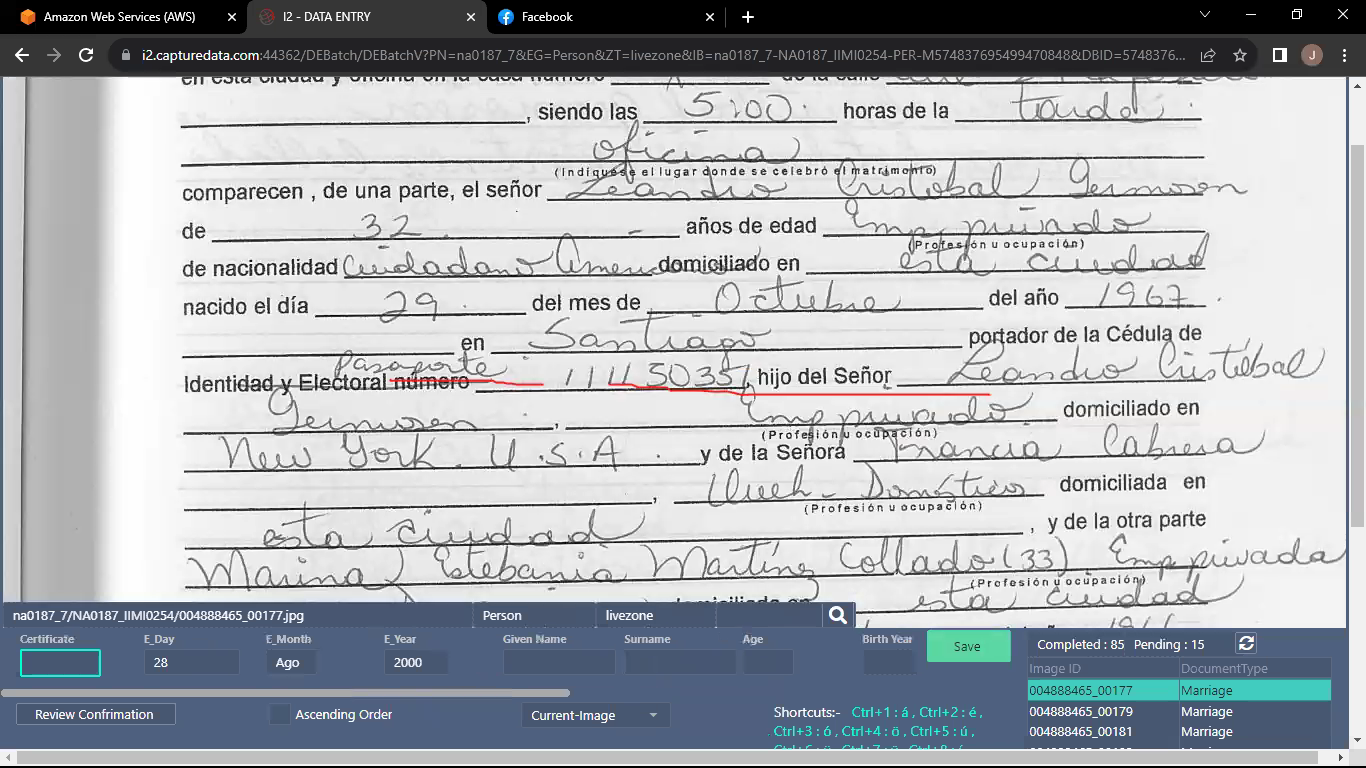 Amazon Web Services (AWS)
I2 - DATA ENTRY
Facebook
i2.capturedata.com:44362/DEBatch/DEBatchV?PN=na0187_7&EG=Person&ZT=livezone&IB=na0187_7-NA0187_IIMI0254-PER-M574837695499470848&DBID=5748376...
J
en esta ciudad y oficina en la casa número de la calle
, siendo las 5:00 horas de la tarde
oficina
(Indiquese el lugar donde se celebró el matrimonio)
comparecen , de una parte, el señor Leandro Cristobal Germosen
de 32 - años de edad Emp privado
(Profesión u ocupación)
de nacionalidad Ciudadano Americano domiciliado en esta ciudad
nacido el día 29 del mes de Octubre del año 1967
en Santiago portador de la Cédula de
Pasaporte
Identidad y Electoral número 111150357, hijo del Señor Leandro Cristóbal
Germosen , Emp privado domiciliado en
(Profesión u ocupación)
New York. U.S.A. y de la Señora Francia Cabrera
, Queh- Domésticos domiciliada en
(Profesión u ocupación)
esta ciudad , y de la otra parte
Marina Estebania Martínez Collado (33) Emp privada
(Profesión u ocupación)
domiciliada en esta ciudad
na0187_7/NA0187_IIMI0254/004888465_00177.jpg Person livezone
Certificate E_Day E_Month E_Year Given Name Surname Age Birth Year
28 Ago 2000
Save
Completed : 85 Pending : 15
Image ID DocumentType
004888465_00177 Marriage
004888465_00179 Marriage
004888465_00181 Marriage
Review Confrimation
Ascending Order
Current-Image
Shortcuts:- Ctrl+1 : á , Ctrl+2 : é ,
Ctrl+3 : ó , Ctrl+4 : ö , Ctrl+5 : ú ,